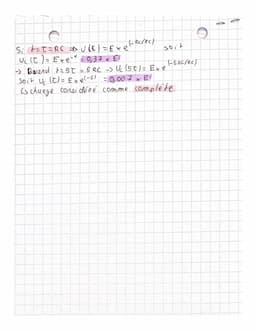 Si t=τ=RC => U(t) = E×e^(-RC/RC) soit
Uc(τ) = E×e^-1 = 0,37×E!
→ Quand t=5τ = 5RC → Uc(5τ) = E×e^(-5RC/RC)
Soit Uc(τ) = E×e^(-5) = 0,007×E!
charge considéré comme complète.